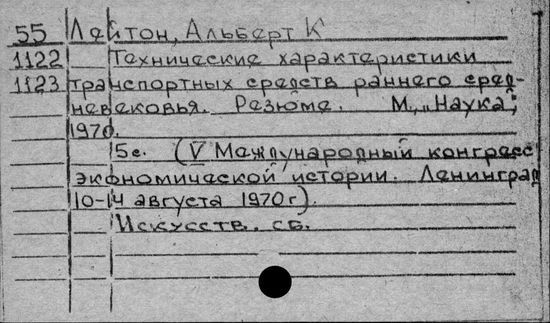 55 Лейтон, Альберт К
1122 Технические характеристики
1123 транспортных средств раннего сред-
невековья. Резюме. М., "Наука",
1970.
5с. (V Международный конгресс
экономической истории. Ленинград
10-14 августа 1970 г).
Искусств. сб.